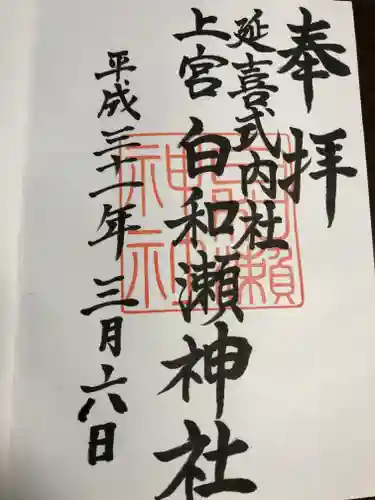 奉拝
延喜式内社
上宮 白和瀬神社
平成三十一年 三月六日